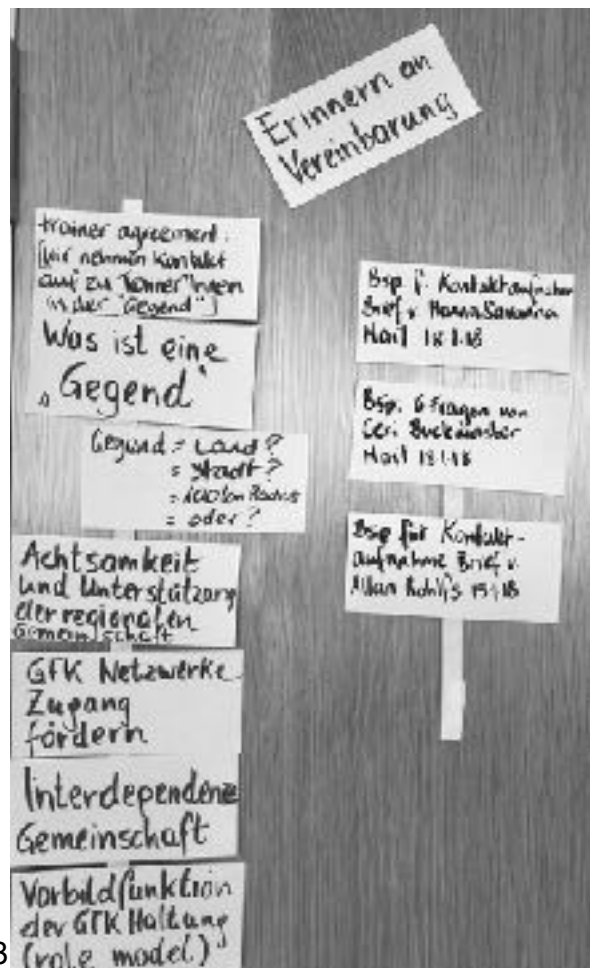 Erinnern an
Vereinbarung
trainer agreement:
[wir nehmen Kontakt
auf zu Trainer*Innen
in der "Gegend"]
Was ist eine
„Gegend“
Gegend = Land?
= Stadt?
= 100 km Radius
= oder?
Achtsamkeit
und Unterstützung
der regionalen
Gemeinschaft
GfK Netzwerke
Zugang
fördern
Interdependenz
Gemeinschaft
Vorbildfunktion
der GfK Haltung
(role model)
Bsp f. Kontaktaufnahme
Brief v.
Mail 18.1.18
Bsp. 6 Fragen von
Ceri Buckmaster
Mail 18.1.18
Bsp für Kontakt-
aufnahme Brief v.
Allan Rohlfs 15.1.18
3